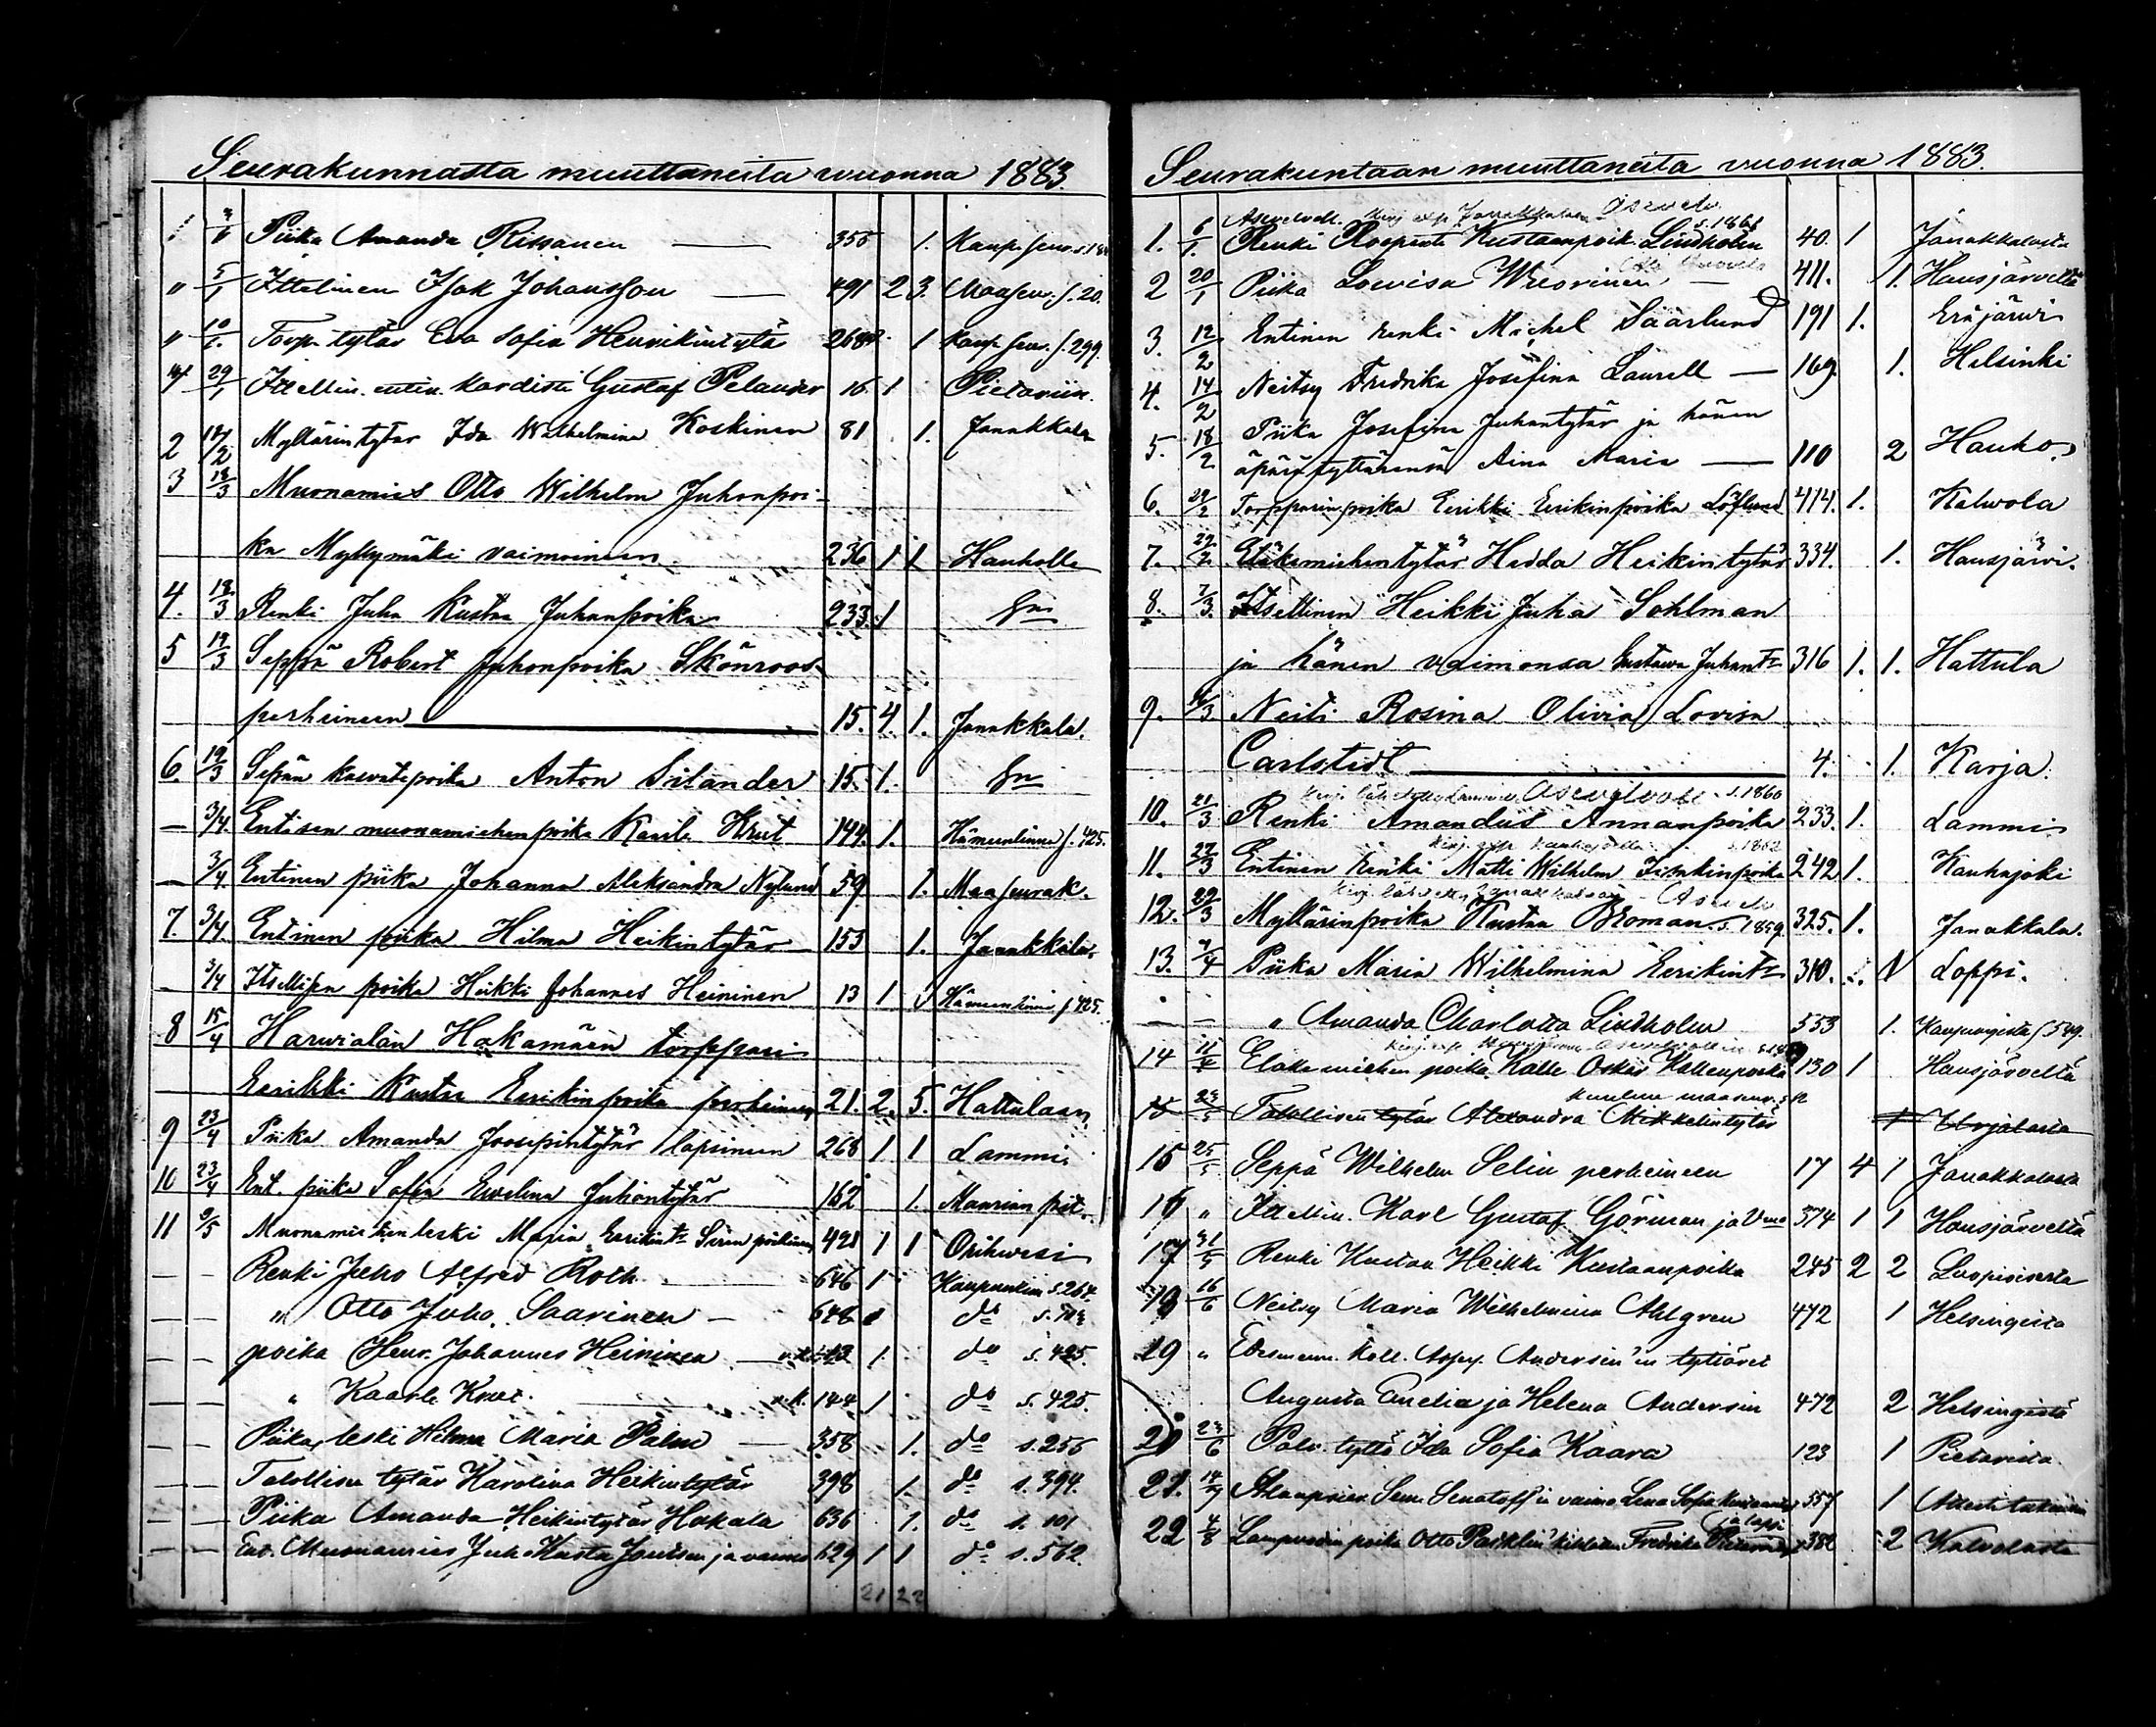 Seurakunnasta muuttaneita vuonna 1883.
Piika Amanda Rissanen — 355 1. Kaup. seur. s.
" 5/1 Ittelinen Isak Johansson — 491 2 3. Maaseur. s. 20.
" 10/1. Torp. tytär Eva Sofia Henrikintytär 268 1 Kaup. seur. s. 299.
29/1 Ittellin. entin. kardisti Gustaf Pelander 16 1 Pietariin.
2 Myllärintytär Ida Wilhelmina Koskinen 81 1. Janakkala
3 18/3 Muonamies Otto Wilhelm Juhonpoi-
ka Myllymäki vaimoineen 236 1 1 Hauholle
4. 18/3 Renki Juha Kustaa Juhanpoika 233. 1
5 19/3 Seppä Robert Juhonpoika Skönroos
perheineen 15. 4. 1. Janakkala.
6. 19/3 Sepän kasvatepoika Anton Silander 15. 1.
— 3/4. Entisen muonamiehenpoika Kaarle Krut 144. 1. Hämeenlinna s. 425.
— 3/4 Entinen piika Johanna Aleksandra Nylund 59 1. Maaseurak.
7. 3/4. Entinen piika Hilma Heikintytär 153 1. Janakkala.
— 3/4 Itsellisen poika Heikki Johannes Heininen 13 1 Hämeenlinna s. 425.
8 15/4 Harvialan Hakamäen torppari
Eerikki Kustaa Eerikinpoika perheineen 21. 2. 5. Hattulaan
9 23/4 Piika Amanda Joosepintytär lapsineen 268 1. 1 Lammi
10 23/4 Ent. piika Sofia Ewelina Juhontytär 162 1. Maarian pit.
11 9/5 Muonamiehen leski Maria Eerikint. Siren poikineen 421 1 1 Orihwesi
— — Renki Juho Alfred Roth 646 1 Kaupunkiin s. 264.
— — " Otto Juho Saarinen — 648 1 do s.
— — poika Henr. Johannes Heininen — 13 1. do s. 425.
— — " Kaarle Krut. 144 1 do s. 425.
— — Piika, leski Hilma Maria Palm — 358 1. do s. 255
— — Talollisen tytär Karolina Heikintytär 398 1. do s. 394.
— — Piika Amanda Heikintytär Hakala 636 1. do s. 101
— — Ent. Muonamies Juho Kusta Joutsen ja vaimo 629 1 1 do s. 562.
21 22
Seurakuntaan muuttaneita vuonna 1883.
Asevelv. Kirj. exp. Janakkalaan Asevelv. s. 1861
1. 6/1. Renki Roopertti Kustaanpoik. Lindholm 40. 1 Janakkalasta
2 20/1 Piika Lowisa Wuorinen — 411. 1. Hausjärveltä
3. 12/2 Entinen renki Michel Säärlund 191 1. Eräjärvi
4. 14/2 Neitsy Fredrika Josefina Laurell — 169. 1. Helsinki
5. 18/2 Piika Josefina Juhantytär ja hänen
äpärätyttärensä Aina Maria — 110 2 Hauho
6. 22/2 Torpparinpoika Eerikki Eerikinpoika Löflund 414. 1. Kalwola
7. Eläkemiehentytär Hedda Heikintytär 334. 1. Hausjärvi.
8. 7/3. Itsellinen Heikki Juha Sohlman
ja hänen vaimonsa Gustawa Juhant. 316 1. 1. Hattula
9. Neiti Rosina Olivia Lovisa
Carlstedt 4. 1. Karja.
Asevelvoll. s. 1860
10. 21/3 Renki Amandus Annanpoika 233. 1. Lammi
s. 1862
11. 27/3 Entinen renki Matti Wilhelm Iisakinpoika 242 1. Kauhajoki
Kirj. lähetetty Janakkalaan Asevelv.
12. 29/3 Myllärinpoika Kustaa Broman. s. 1859. 325. 1. Janakkala.
13. 7/4 Piika Maria Wilhelmina Eerikint. 310. 1 Loppi.
— — " Amanda Charlotta Lindholm 553 1. Kaupungista s. 549.
14 Eläkemiehen poika Kalle Oskar Kallenpoika 130 1 Hausjärveltä
kuuluu maaseur.
15 23/5 Talollisen tytär Alexandra Mikkelintytär 1 Urjalasta
15 25/5 Seppä Wilhelm Selin perheineen 17 4 1 Janakkalasta
16 " Itsellin. Karl Gustaf Görman ja Vmo 374 1 1 Hausjärveltä
17 31/5 Renki Kustaa Heikki Kustaanpoika 245 2 2 Luopioisista
18 16/6 Neitsy Maria Wilhelmina Ahlgren 472 1 Helsingistä
19 " Edesmenn. Koll. Asses. Andersin'in tyttäret
Augusta Emelia ja Helena Andersin 472 2 Helsingistä
20 23/6 Palv. tyttö Ida Sofia Kaara 123 1 Pietarista
21. Alaupsier. Sem. Senatoff'in vaimo Lena Sofia 357 1
ja lapsi
22 4/8 Lampuodin poika Otto kihlattu Fredrika 386 2 Kalvolasta